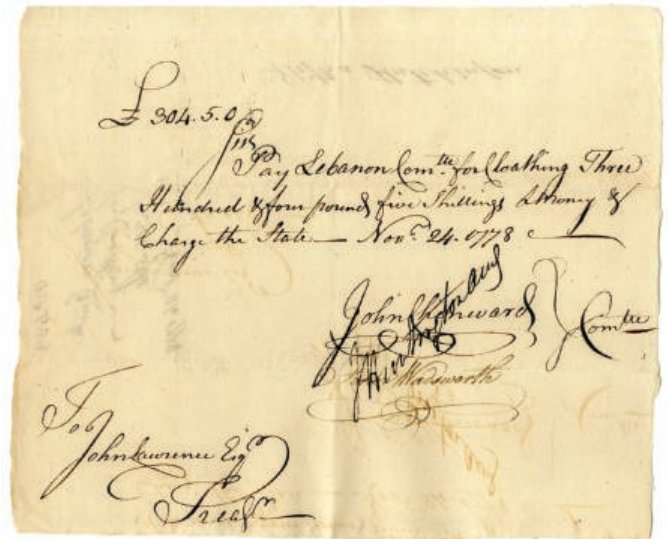 £ 304.5.0
Sir
Pay Lebanon Comtte for Cloathing Three
Hundred & four pounds five Shillings Money &
Charge the State Novr 24. 1778
John Chenward
Comtte
Wadsworth
To
John Lawrence Esqr
Treasr